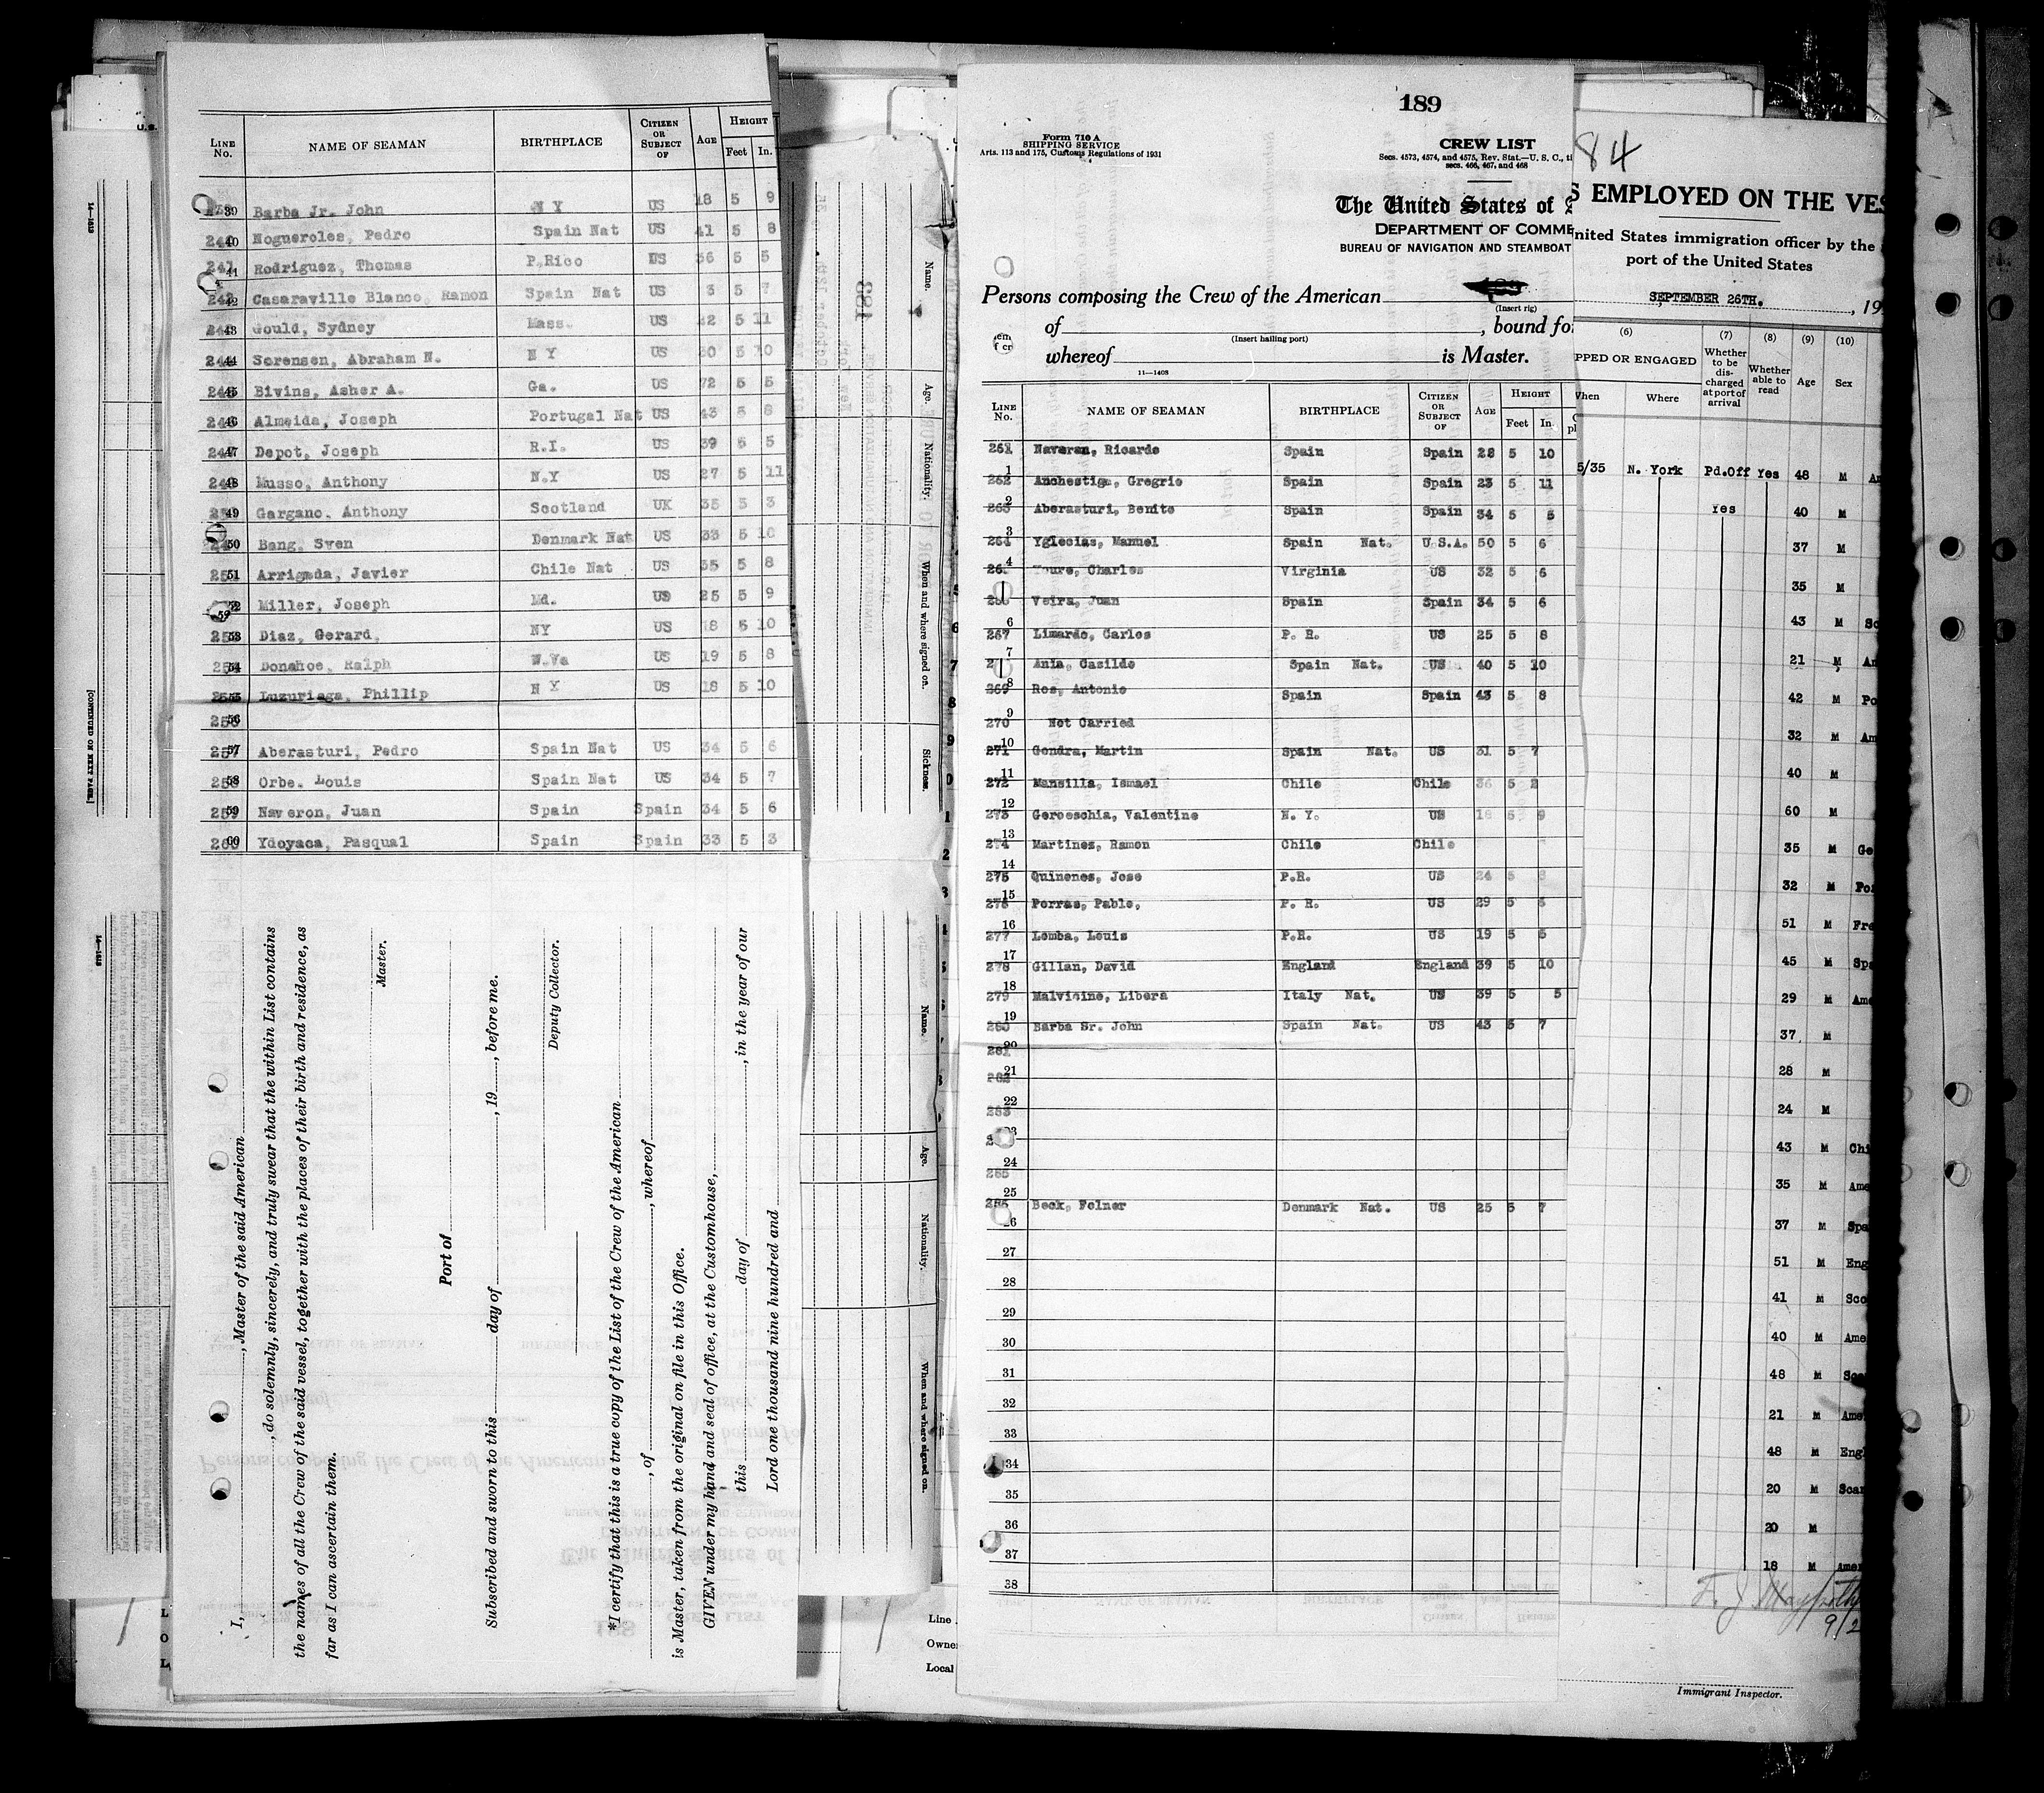 LINE No. NAME OF SEAMAN BIRTHPLACE CITIZEN OR SUBJECT OF AGE HEIGHT Feet In.
39 Barba Jr. John N Y US 18 5 9
240 40 Nogueroles, Pedro Spain Nat US 41 5 8
241 41 Rodriguez, Thomas P.Rico US 36 5 5
242 42 Casaraville Blanco, Ramon Spain Nat US 3 5 7
43 Gould, Sydney Mass. US 42 5 11
44 Sorensen, Abraham N. N Y US 30 5 10
45 Bivins, Asher A. Ga. US 72 5 5
46 Almeida, Joseph Portugal Nat US 43 5 8
47 Depot, Joseph R.I. US 39 5 5
48 Musso, Anthony N.Y US 27 5 11
49 Gargano, Anthony Scotland UK 35 5 3
50 Bang, Swen Denmark Nat US 33 5 10
51 Arrigada, Javier Chile Nat US 35 5 8
52 Miller, Joseph Md. US 25 5 9
53 Diaz, Gerard, NY US 18 5 10
54 Donahoe, Ralph W.Va US 19 5 8
55 Luzuriaga, Phillip N Y US 18 5 10
256 56
257 57 Aberasturi, Pedro Spain Nat US 34 5 6
258 58 Orbe. Louis Spain Nat US 34 5 7
259 59 Naveron, Juan Spain Spain 34 5 6
260 60 Ydoyaca, Pasqual Spain Spain 33 5 3
I, , Master of the said American
, do solemnly, sincerely, and truly swear that the within List contains
the names of all the Crew of the said vessel, together with the places of their birth and residence, as
far as I can ascertain them.
Master.
Port of
Subscribed and sworn to this day of , 19 , before me.
Deputy Collector.
*I certify that this is a true copy of the List of the Crew of the American
, of , whereof
is Master, taken from the original on file in this Office.
GIVEN under my hand and seal of office, at the Customhouse,
this day of , in the year of our
Lord one thousand nine hundred and
[CONTINUED ON NEXT PAGE.]
Name.
Age.
Nationality.
When and where signed on.
Sickness.
Name.
Age.
Nationality.
When and where signed on.
Line
Owne
Local
189
Form 710 A
SHIPPING SERVICE
Arts. 113 and 175, Customs Regulations of 1931
CREW LIST
Secs. 4573, 4574, and 4575, Rev. Stat.—U. S. C., ti
secs. 466, 467, and 468
The United States of
DEPARTMENT OF COMME
BUREAU OF NAVIGATION AND STEAMBOAT
Persons composing the Crew of the American
(Insert rig)
of , bound fo
(Insert hailing port)
whereof is Master.
11—1408
LINE No. NAME OF SEAMAN BIRTHPLACE CITIZEN OR SUBJECT OF AGE HEIGHT Feet In.
261 Naveran, Ricardo Spain Spain 28 5 10
1
262 Anchestiga, Gregrio Spain Spain 23 5 11
2
263 Aberasturi, Benito Spain Spain 34 5 5
3
264 Yglecias, Manuel Spain Nat. U.S.A. 50 5 6
4
Charles Virginia US 32 5 6
Veira, Juan Spain Spain 34 5 6
6
267 Limardo, Carlos P. R. US 25 5 8
7
Ania, Casildo Spain Nat. US 40 5 10
8
269 Ros, Antonio Spain Spain 43 5 8
9
270 Not Carried
10
271 Gondra, Martin Spain Nat. US 31 5 7
11
272 Mansilla, Ismael Chile Chile 36 5 2
12
273 Geroeschia, Valentine N. Y. US 18 5 9
13
274 Martinez, Ramon Chile Chile
14
275 Quinones, Jose P.R. US 24 5
15
276 Porras, Pablo, P. R. US 29 5 5
16
277 Lomba, Louis P.R. US 19 5 5
17
278 Gillan, David England England 39 5 10
18
279 Malvicine, Libera Italy Nat. US 39 5 5
19
280 Barba Sr. John Spain Nat. US 43 5 7
20
281
21
282
22
283
23
24
285
25
286 Beck, Folner Denmark Nat. US 25 5 7
26
27
28
29
30
31
32
33
34
35
36
37
38
84
S EMPLOYED ON THE VES
nited States immigration officer by the
port of the United States
SEPTEMBER 26TH. , 19
(6) (7) (8) (9) (10)
PPED OR ENGAGED Whether to be discharged at port of arrival Whether able to read Age Sex
When Where
5/35 N. York Pd.Off Yes 48 M
Yes 40 M
37 M
35 M
43 M Sc
21 M Am
42 M Po
32 M Am
40 M
60 M
35 M Ge
32 M Po
51 M Fre
45 M Spa
29 M Ame
37 M
28 M
24 M
43 M Chi
35 M Ame
37 M Spa
51 M Eng
41 M Sco
40 M Ame
48 M Sca
21 M Ame
48 M Engl
20 M Scan
20 M
18 M Amer
9/2
Immigrant Inspector.